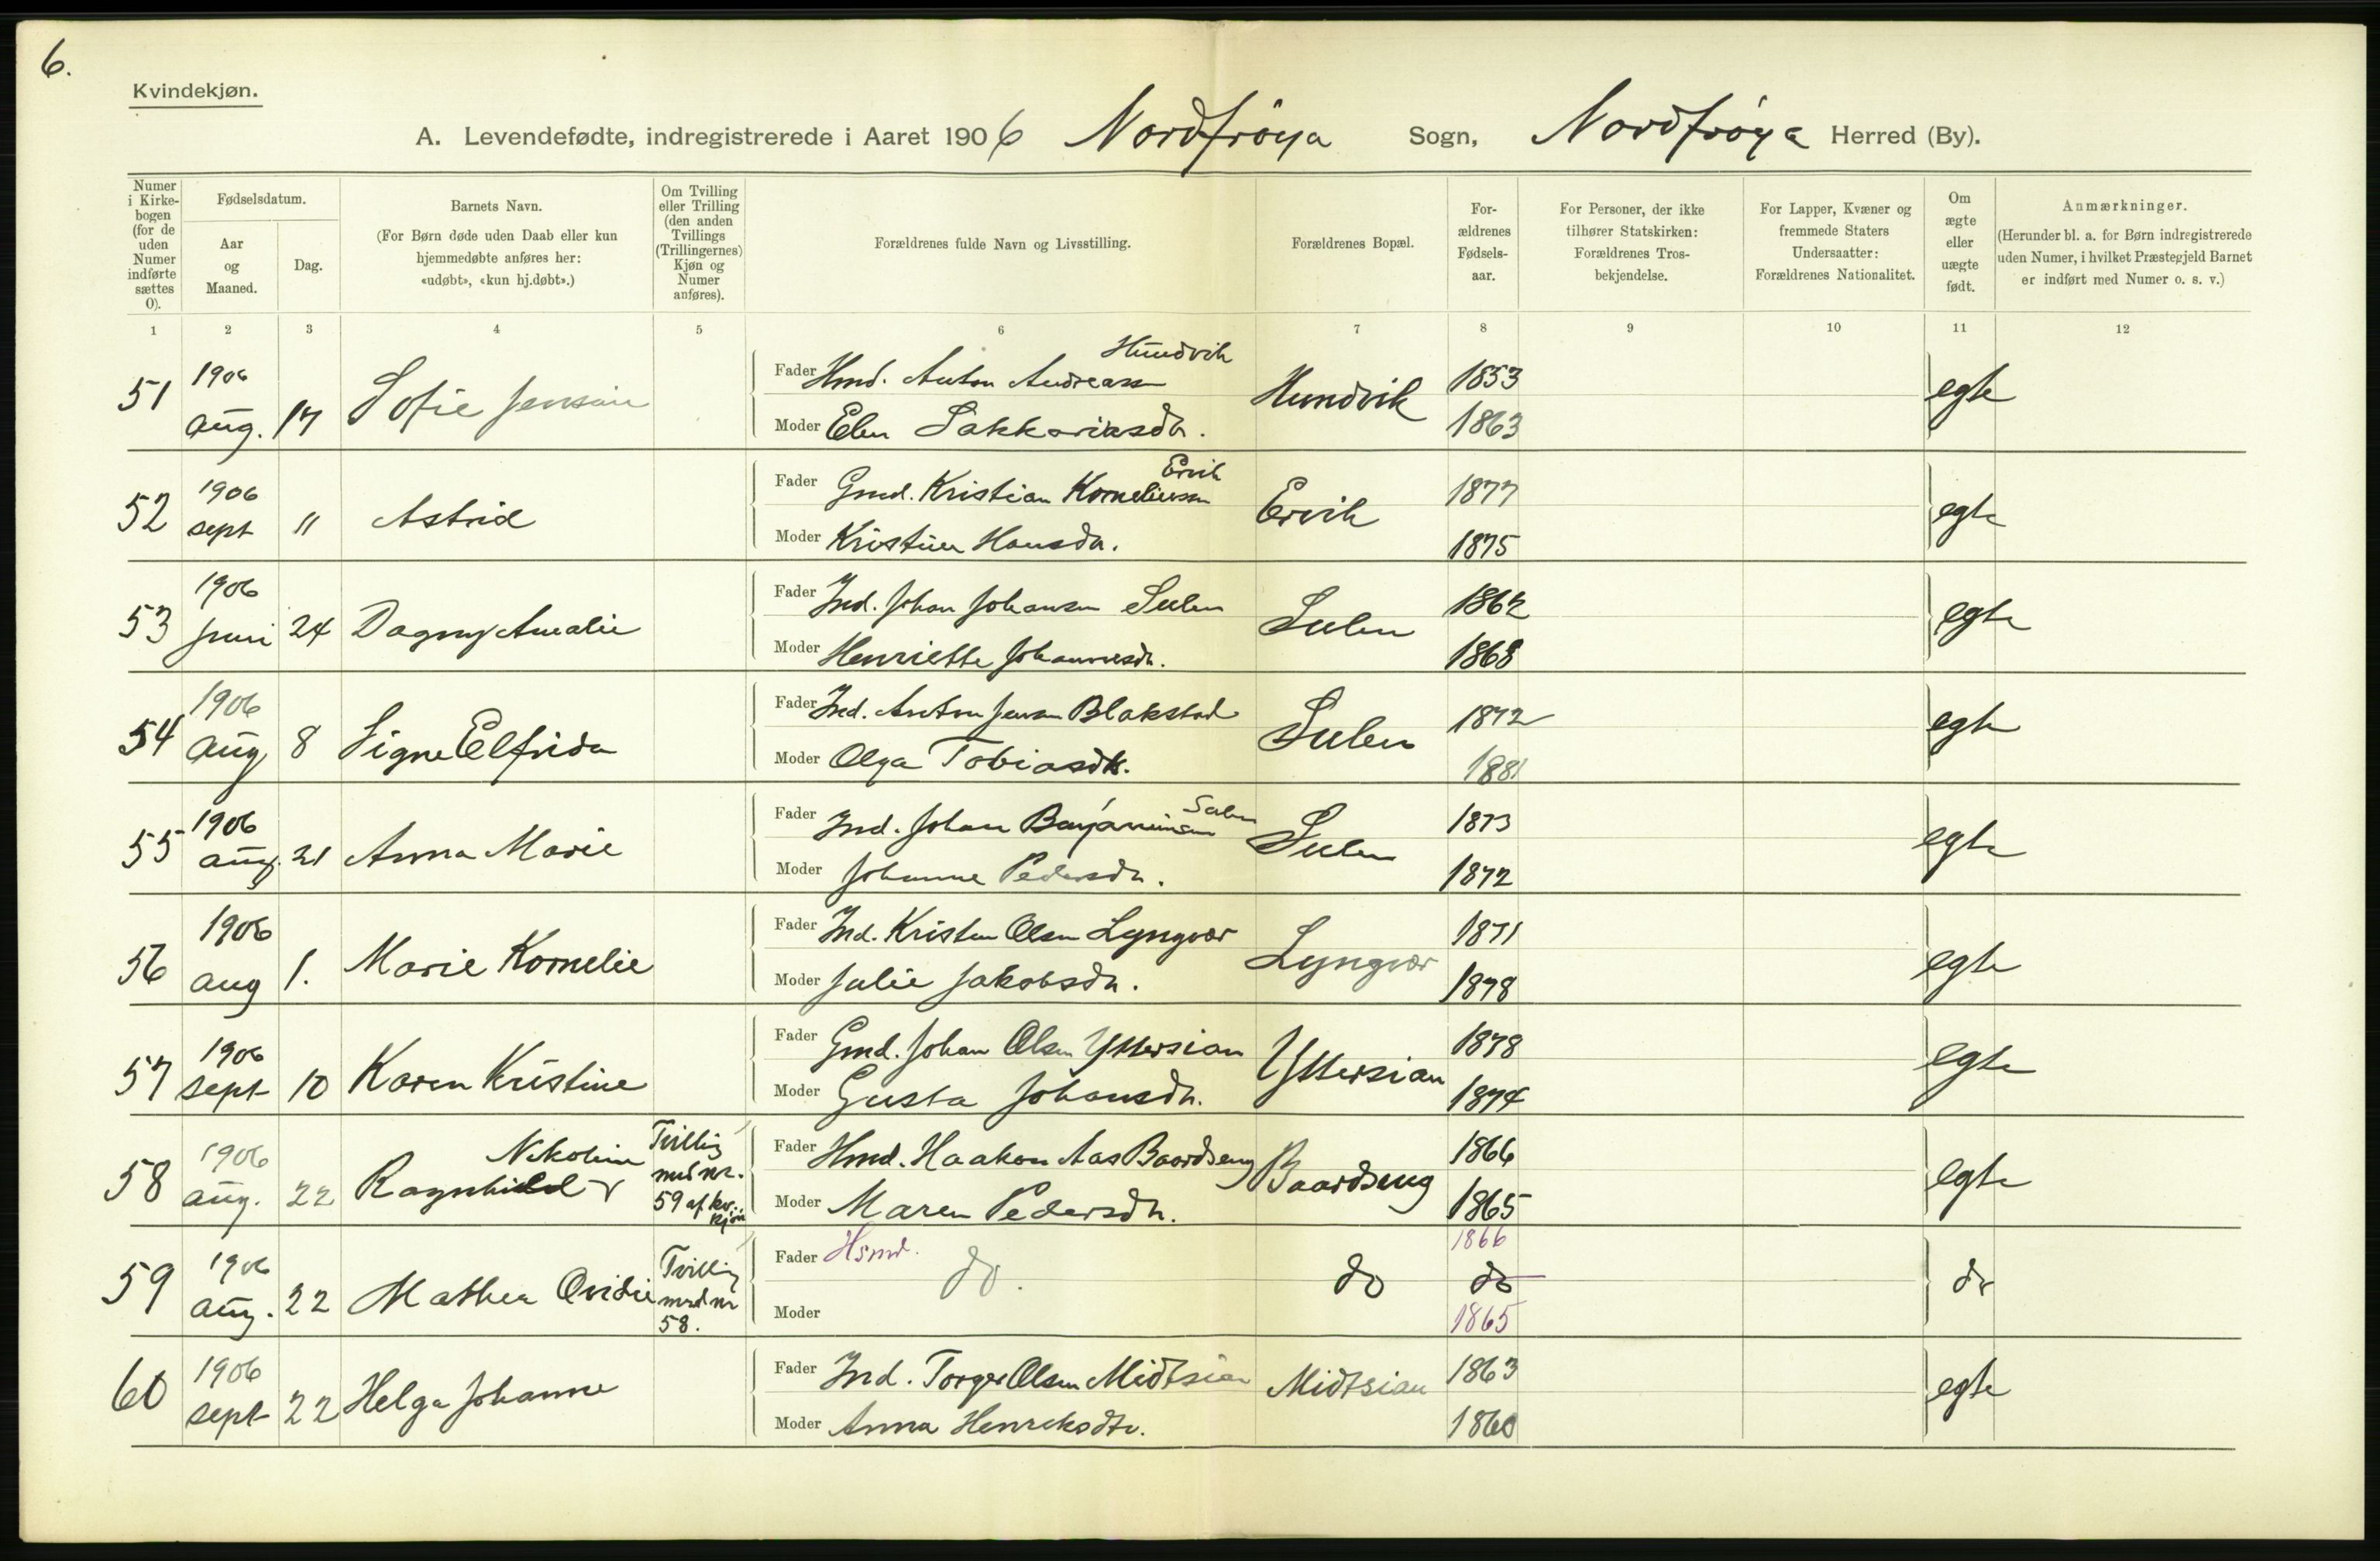 6.
Kvindekjøn.
A. Levendefødte, indregistrerede i Aaret 1906 Nordfröya Sogn, Nordfröya Herred (By).
Numer i Kirke-bogen (for de uden Numer indførte sættes 0).
Fødselsdatum.
Aar og Maaned.
Dag.
Barnets Navn.
(For Børn døde uden Daab eller kun hjemmedøbte anføres her: «udøbt», «kun hj.døbt».)
Om Tvilling eller Trilling (den anden Tvillings (Trillingernes) Kjøn og Numer anføres).
Forældrenes fulde Navn og Livsstilling.
Forældrenes Bopæl.
For-ældrenes Fødsels-aar.
For Personer, der ikke tilhører Statskirken: Forældrenes Tros-bekjendelse.
For Lapper, Kvæner og fremmede Staters Undersaatter: Forældrenes Nationalitet.
Om ægte eller uægte født.
Anmærkninger.
(Herunder bl. a. for Børn indregistrerede uden Numer, i hvilket Præstegjeld Barnet er indført med Numer o. s. v.)
1 2 3 4 5 6 7 8 9 10 11 12
51 1906 aug. 17 Sofie
Fader Hmd. Anton Andreassen Hundvik
Moder Elen Sakkariasdtr.
Hundvik 1853 1863 egte
52 1906 sept 11 Astrid
Fader Gmd. Kristian Korneliussen Ervik
Moder Kristine Hansdtr.
Ervik 1877 1875 egte
53 1906 juni 24 Dagny Amalie
Fader Ind. Johan Johansen Sulen
Moder Henriette Johannesdtr.
Sulen 1862 1868 egte
54 1906 aug 8 Signe Elfrida
Fader Ind. Anton Jensen Blakstad
Moder Olga Tobiasdtr.
Sulen 1872 1881 egte
55 1906 aug. 21 Anna Marie
Fader Ind. Johan Benjaminsen Sulen
Moder Johanne Pedersdtr.
Sulen 1873 1872 egte
56 1906 aug 1. Marie Kornelie
Fader Ind. Kristen Olsen Lyngvær
Moder Julie Jakobsdtr.
Lyngvær 1871 1878 egte
57 1906 sept 10 Karen Kristine
Fader Gmd. Johan Olsen Yttersian
Moder Gusta Johansdtr.
Yttersian 1878 1874 egte
58 1906 aug. 22 Ragnhild Nikoline
Tvilling med nr. 59 af kv. kjön
Fader Hmd. Haakon Aas Baardseng
Moder Maren Pedersdtr.
Baardseng 1866 1865 egte
59 1906 aug. 22 Mathea Ovidie
Tvilling med nr 58.
Fader Hsmd. do.
Moder
do 1866 do 1865 do
60 1906 sept 22 Helga Johanne
Fader Ind. Torger Olsen Midtsian
Moder Anna Henriksdtr.
Midtsian 1863 1860 egte